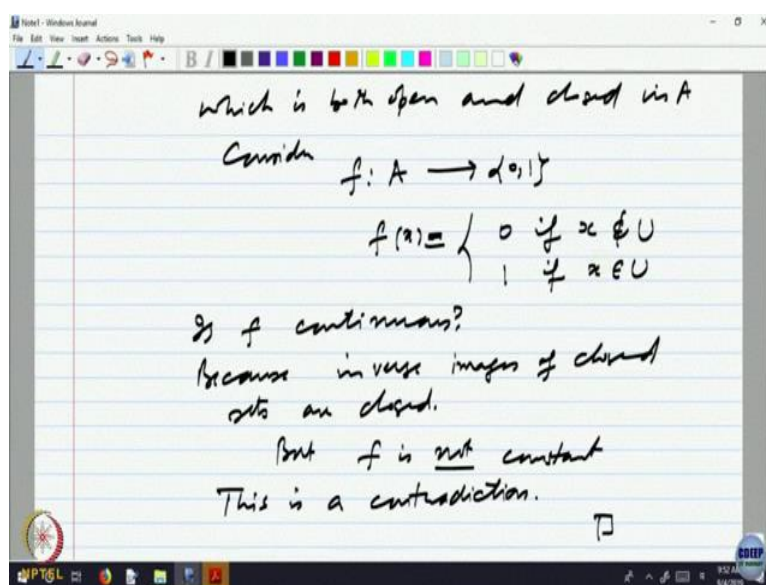 Note1 - Windows Journal
File Edit View Insert Actions Tools Help
which is both open and closed in A
Consider
f : A ⟶ {0,1}
f(x) = { 0 if x ∉ U
1 if x ∈ U
Is f continuous?
Because inverse images of closed
sets are closed.
But f is not constant
This is a contradiction.
NPTEL
CDEEP